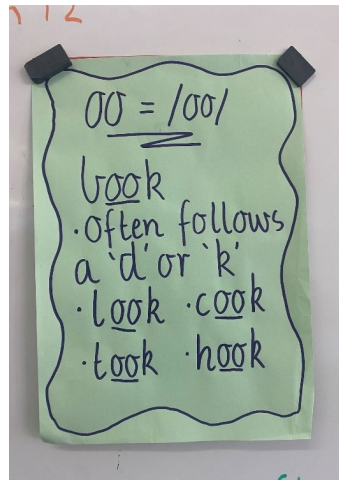 oo = /oo/
book
· often follows
a 'd' or 'k'
· look · cook
· took · hook